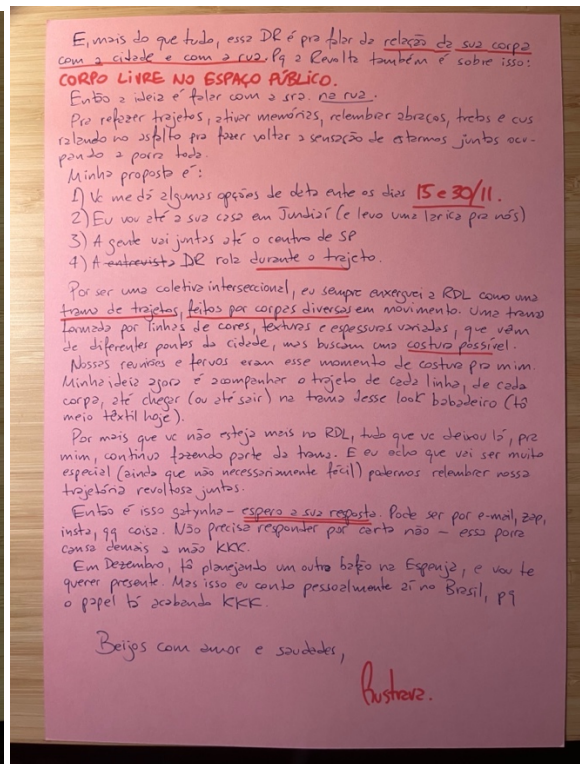 E, mais do que tudo, essa DR é pra falar da relação da sua corpa
com a cidade e com a rua. Pq a Revolta também é sobre isso:
CORPO LIVRE NO ESPAÇO PÚBLICO.
Então a ideia é falar com a sra. na rua.
Pra refazer trajetos, ativar memórias, relembrar abraços, tretas e cus
ralando no asfalto pra fazer voltar a sensação de estarmos juntas ocu-
pando a porra toda.
Minha proposta é:
1) Vc me dá algumas opções de data ente os dias 15 e 30/11.
2) Eu vou até a sua casa em Jundiaí (e levo uma larica pra nós)
3) A gente vai juntas até o centro de SP
4) A entrevista DR rola durante o trajeto.
Por ser uma coletiva interseccional, eu sempre enxerguei a RDL como uma
trama de trajetos, feitos por corpas diversas em movimento. Uma trama
formada por linhas de cores, texturas e espessuras variadas, que vêm
de diferentes pontos da cidade, mas buscam uma costura possível.
Nossas reuniões e fervos eram esse momento de costura pra mim.
Minha ideia agora é acompanhar o trajeto de cada linha, de cada
corpa, até chegar (ou até sair) na trama desse look babadeiro (tô
meio têxtil hoje).
Por mais que vc não esteja mais na RDL, tudo que vc deixou lá, pra
mim, continua fazendo parte da trama. E eu acho que vai ser muito
especial (ainda que não necessariamente fácil) podermos relembrar nossa
trajetória revoltosa juntas.
Então é isso gatynha – espero a sua resposta. Pode ser por e-mail, zap,
insta, qq coisa. Não precisa responder por carta não – essa porra
cansa demais a mão KKK.
Em Dezembro, tô planejando um outro bafão na Espanja, e vou te
querer presente. Mas isso eu conto pessoalmente aí no Brasil, pq
o papel tá acabando KKK.
Beijos com amor e saudades,